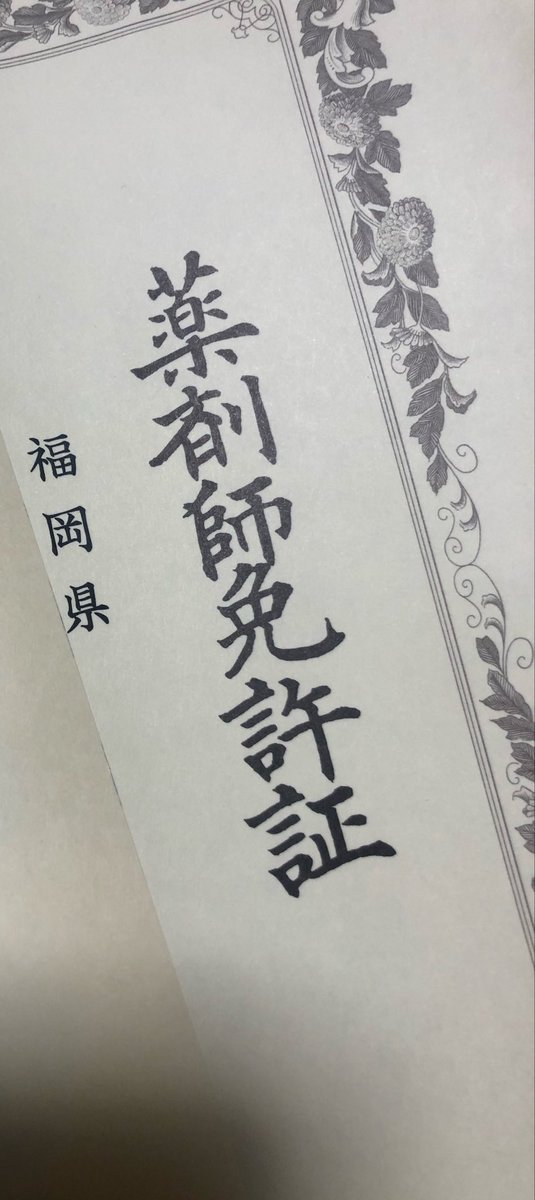 薬剤師免許証
福岡県